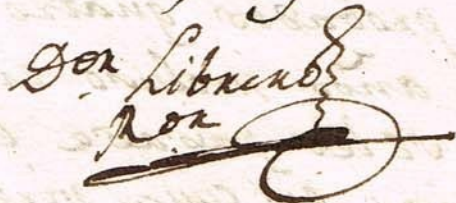 Don Librero
Ron